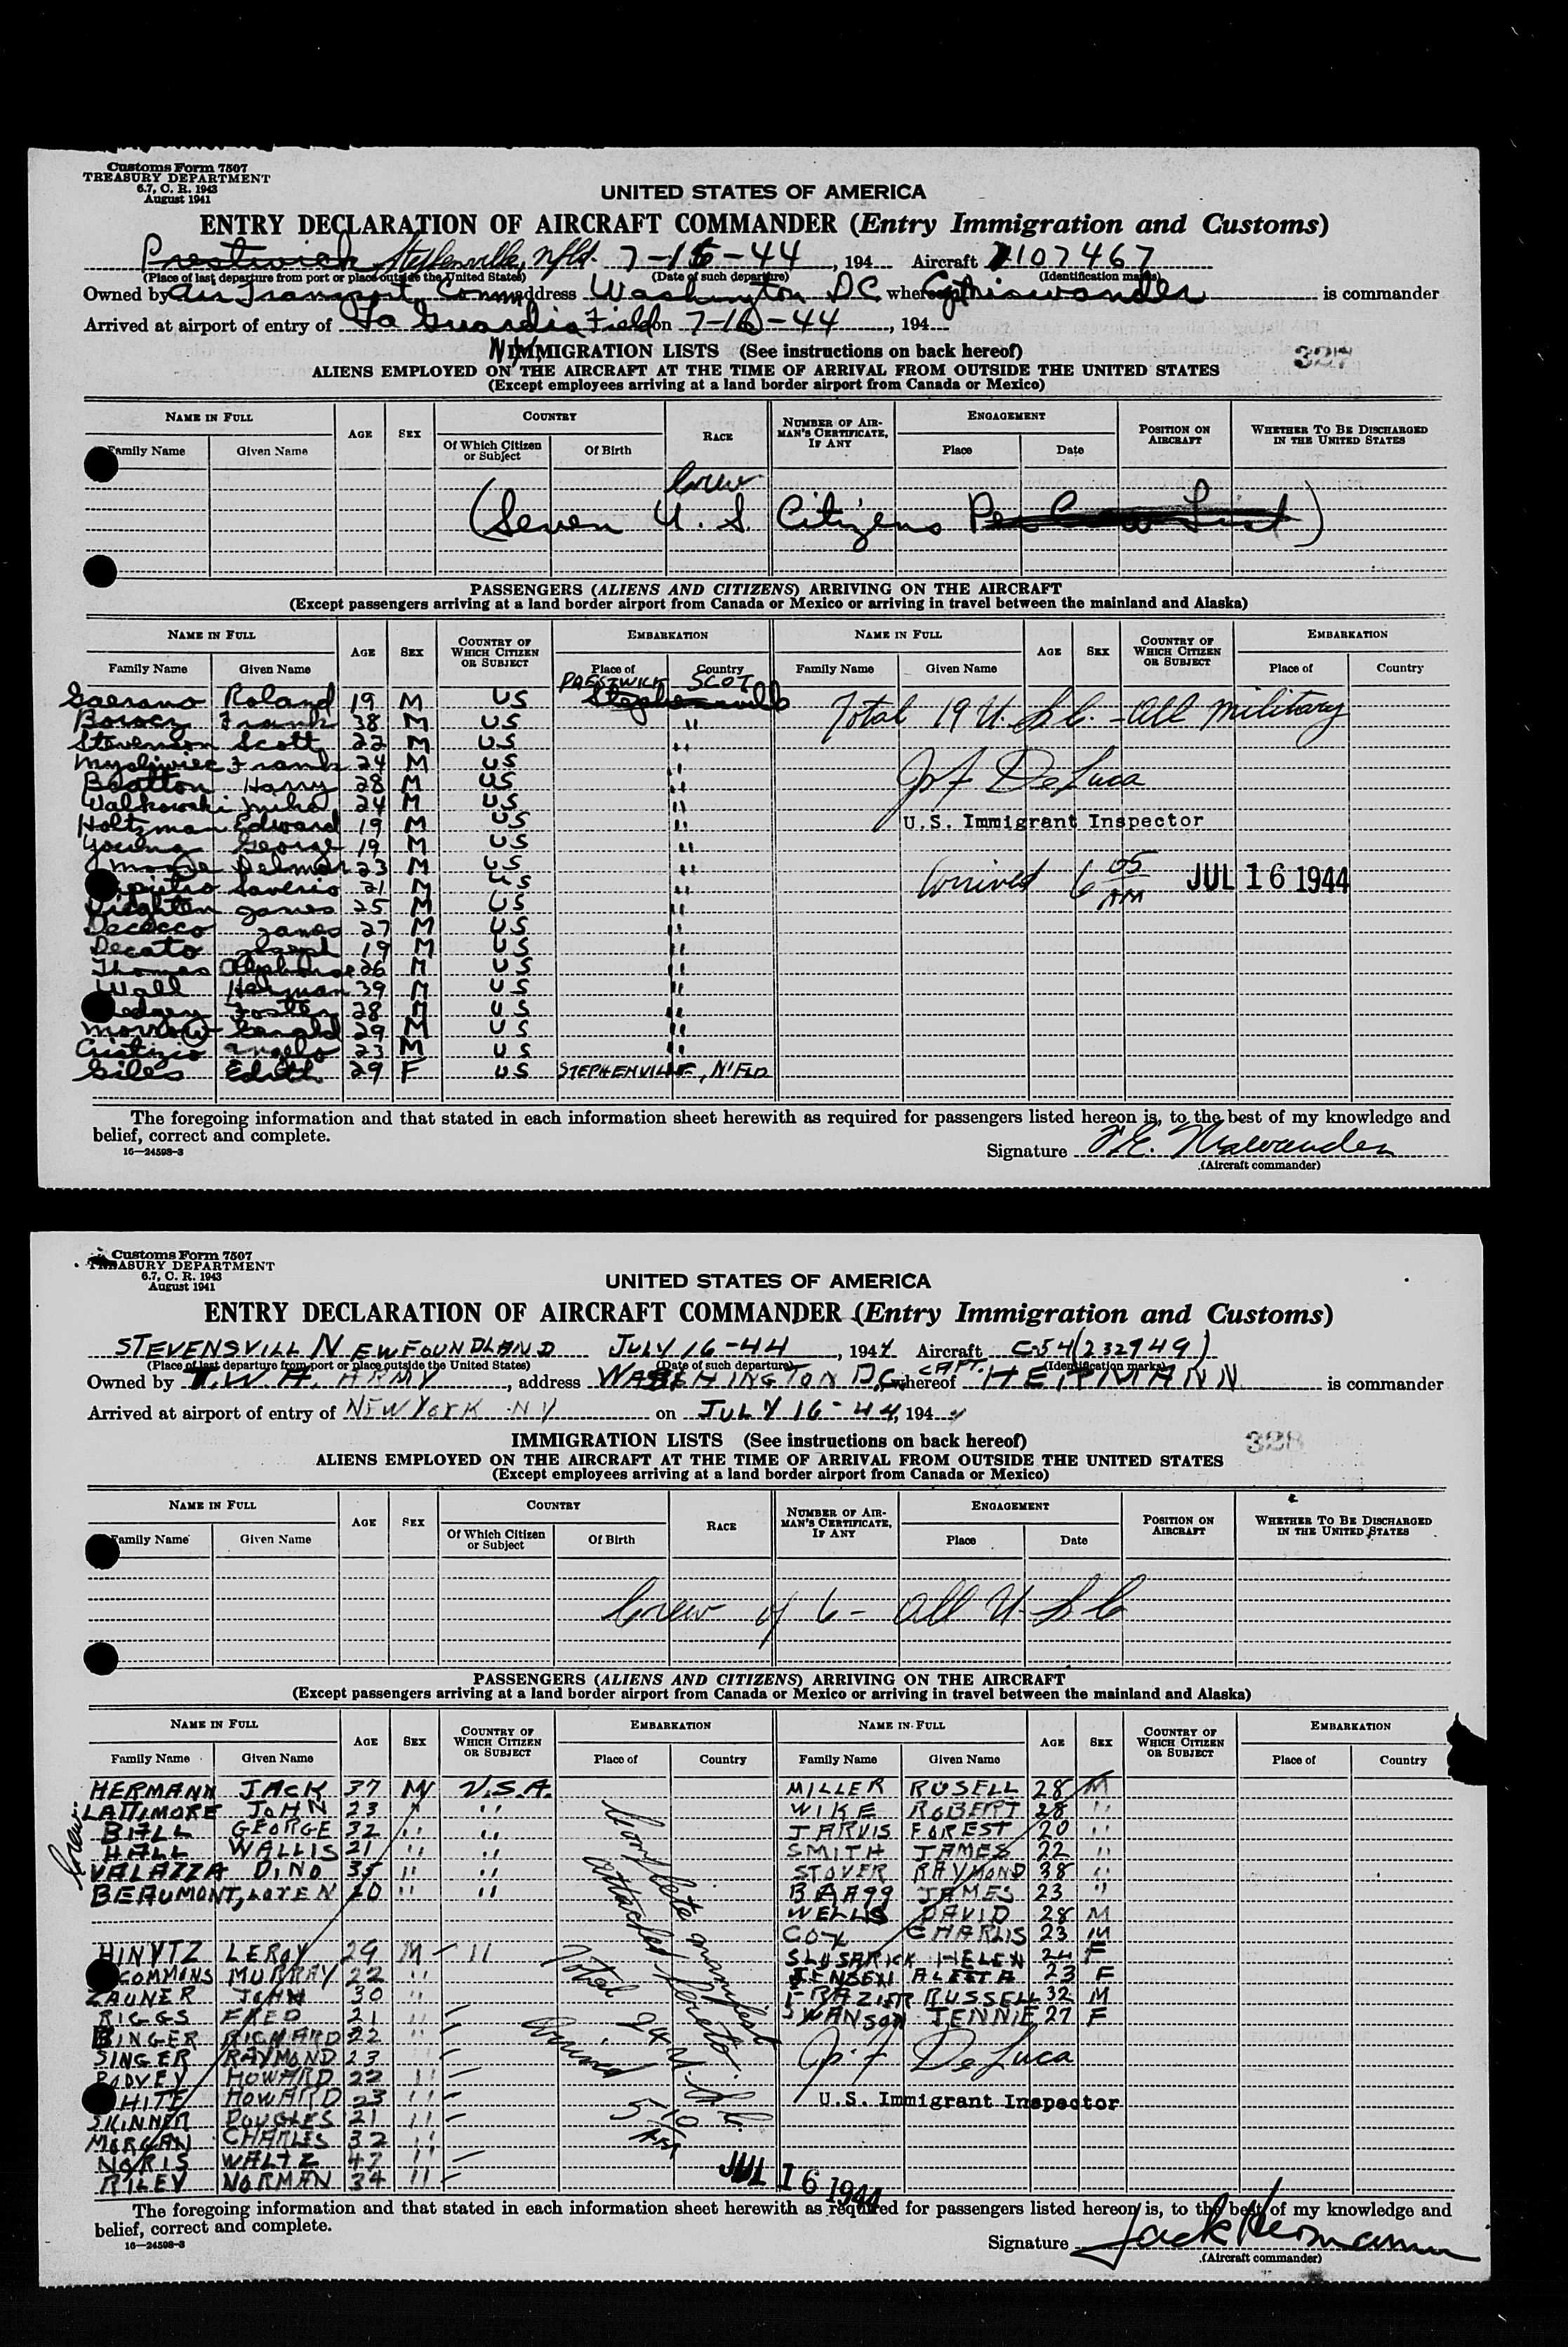 Customs Form 7507
TREASURY DEPARTMENT
6.7, C. R. 1943
August 1941
UNITED STATES OF AMERICA
ENTRY DECLARATION OF AIRCRAFT COMMANDER (Entry Immigration and Customs)
Prestwick Stephenville, Nfld. 7-16-44, 194 Aircraft 107467
(Place of last departure from port or place outside the United States) (Date of such departure) (Identification marks)
Owned by Air Transport Comm address Washington DC whereof is commander
Arrived at airport of entry of La Guardia Field on 7-16-44, 194
NY
IMMIGRATION LISTS (See instructions on back hereof) 327
ALIENS EMPLOYED ON THE AIRCRAFT AT THE TIME OF ARRIVAL FROM OUTSIDE THE UNITED STATES
(Except employees arriving at a land border airport from Canada or Mexico)
NAME IN FULL AGE SEX COUNTRY RACE NUMBER OF AIRMAN'S CERTIFICATE, IF ANY ENGAGEMENT POSITION ON AIRCRAFT WHETHER TO BE DISCHARGED IN THE UNITED STATES
Family Name Given Name Of Which Citizen or Subject Of Birth Place Date
Crew
(Seven U. S. Citizens Per Crew List)
PASSENGERS (ALIENS AND CITIZENS) ARRIVING ON THE AIRCRAFT
(Except passengers arriving at a land border airport from Canada or Mexico or arriving in travel between the mainland and Alaska)
NAME IN FULL AGE SEX COUNTRY OF WHICH CITIZEN OR SUBJECT EMBARKATION NAME IN FULL AGE SEX COUNTRY OF WHICH CITIZEN OR SUBJECT EMBARKATION
Family Name Given Name Place of Country Family Name Given Name Place of Country
PRESTWICK SCOT
Roland 19 M US Stephenville Total 19 U.S.C. - All Military
Frank 38 M US "
Stevenson Scott 22 M US "
Frank 24 M US "
Harry 28 M US " Jos F De Luca
Walkowski 24 M US "
Holtzman Edward 19 M US " U.S. Immigrant Inspector
Young George 19 M US "
Moore Delmar 23 M US "
Saverio 21 M US " Arrived 6 05 AM JUL 16 1944
James 25 M US "
Dececco James 27 M US "
Decato Joseph 19 M US "
Thomas Alphonse 26 M US "
Wall Herman 39 M US "
Foster 28 M US "
Morrow Gerald 29 M US "
Angelo 23 M US "
Giles Edith 29 F US STEPHENVILLE, N'FLD
The foregoing information and that stated in each information sheet herewith as required for passengers listed hereon is, to the best of my knowledge and
belief, correct and complete.
16—24598-3
Signature
(Aircraft commander)
Customs Form 7507
TREASURY DEPARTMENT
6.7, C. R. 1943
August 1941
UNITED STATES OF AMERICA
ENTRY DECLARATION OF AIRCRAFT COMMANDER (Entry Immigration and Customs)
STEVENSVILL NEWFOUNDLAND JULY 16-44, 1944 Aircraft C-54 (232949)
(Place of last departure from port or place outside the United States) (Date of such departure) (Identification marks)
Owned by T.W.A. ARMY, address WASHINGTON D.C. whereof CAPT. HERMANN is commander
Arrived at airport of entry of NEW YORK NY on JULY 16-44, 1944
IMMIGRATION LISTS (See instructions on back hereof) 328
ALIENS EMPLOYED ON THE AIRCRAFT AT THE TIME OF ARRIVAL FROM OUTSIDE THE UNITED STATES
(Except employees arriving at a land border airport from Canada or Mexico)
NAME IN FULL AGE SEX COUNTRY RACE NUMBER OF AIRMAN'S CERTIFICATE, IF ANY ENGAGEMENT POSITION ON AIRCRAFT WHETHER TO BE DISCHARGED IN THE UNITED STATES
Family Name Given Name Of Which Citizen or Subject Of Birth Place Date
Crew of 6 - All U.S.C
PASSENGERS (ALIENS AND CITIZENS) ARRIVING ON THE AIRCRAFT
(Except passengers arriving at a land border airport from Canada or Mexico or arriving in travel between the mainland and Alaska)
NAME IN FULL AGE SEX COUNTRY OF WHICH CITIZEN OR SUBJECT EMBARKATION NAME IN FULL AGE SEX COUNTRY OF WHICH CITIZEN OR SUBJECT EMBARKATION
Family Name Given Name Place of Country Family Name Given Name Place of Country
Crew
HERMANN JACK 37 M U.S.A. MILLER RUSELL 28 M
LATTIMORE JOHN 23 " " WIKE ROBERT 28 "
BALL GEORGE 32 " " JARVIS FOREST 20 "
HALL WALLIS 21 " " SMITH JAMES 22 "
VALAZZA DINO 35 " " STOVER RAYMOND 38 "
BEAUMONT, LOREN 20 " " BAAGG JAMES 23 "
WELLS DAVID 28 M
COX CHARLIS 23 M
HINVTZ LEROY 29 M " SLUSARICK HELEN 24 F
COMMINS MURRAY 22 " JENSEN ALETTA 23 F
ZAUNER JOHN 30 " FRAZIER RUSSELL 32 M
RIGGS FRED 21 " SWANSON JENNIE 27 F
BINGER RICHARD 22 "
SINGER RAYMOND 23 " Jos. F De Luca
HOWARD 22 "
WHITE HOWARD 23 " U.S. Immigrant Inspector
SKINNER DOUGLES 21 "
MORGAN CHARLES 32 "
NORIS WALTZ 47 "
RILEY NORMAN 34 "
Complete manifest
attached hereto.
Total 24 U.S.C.
Arrived 5 10 AM
JUL 16 1944
The foregoing information and that stated in each information sheet herewith as required for passengers listed hereon is, to the best of my knowledge and
belief, correct and complete.
16—24598-3
Signature Jack Hermann
(Aircraft commander)